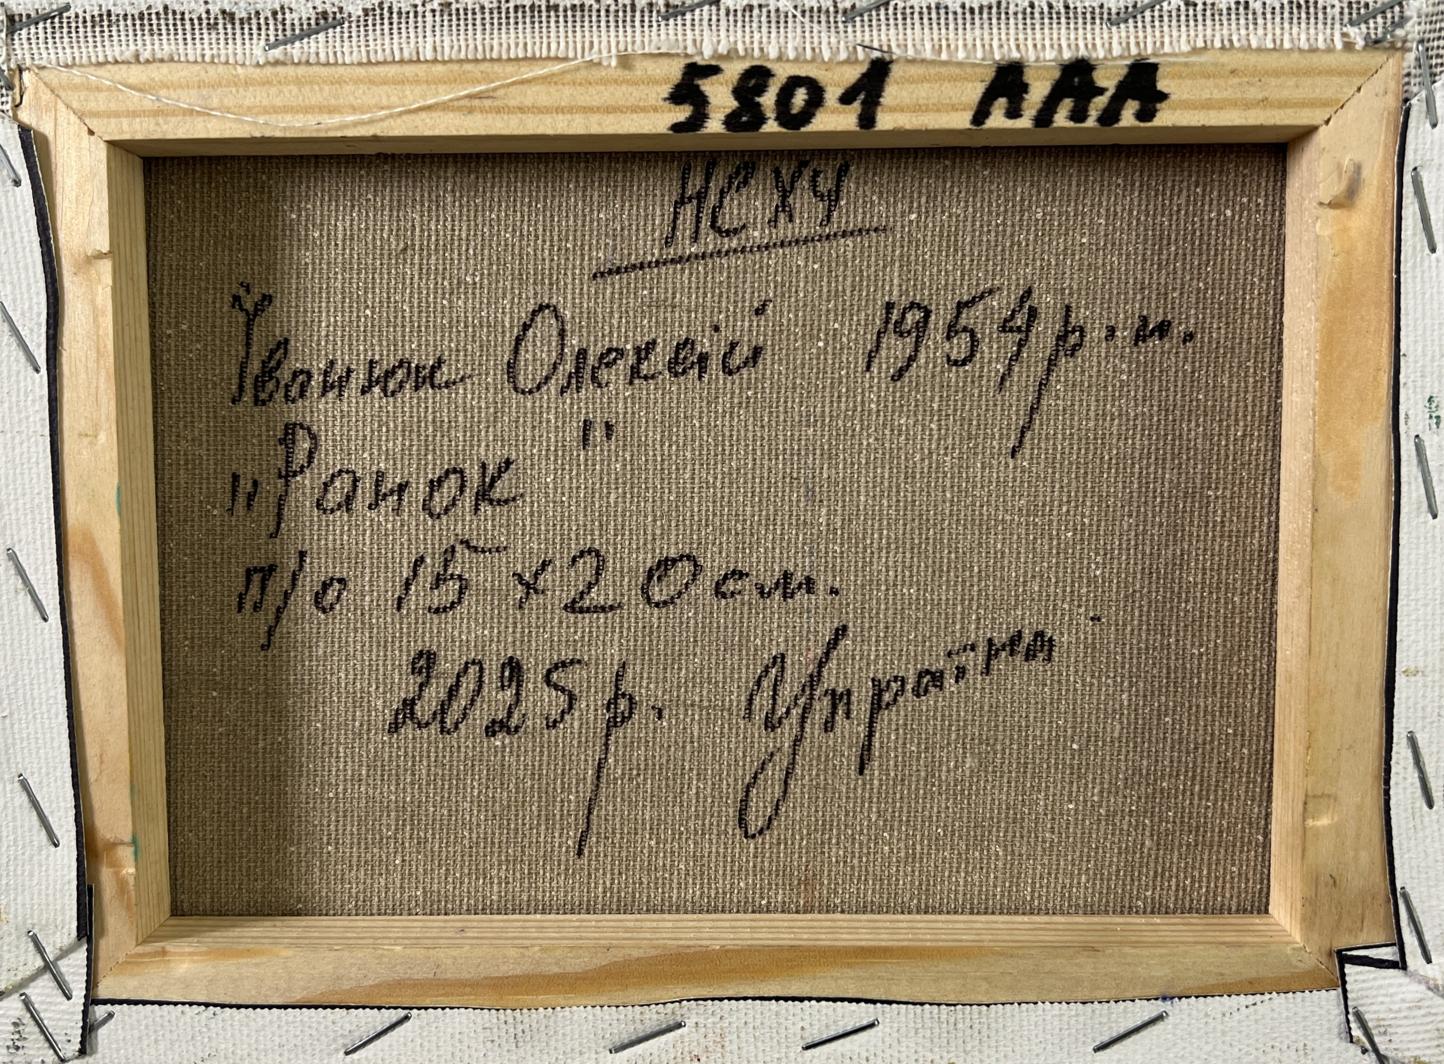 5801 AAA
НСХУ
Їванюк Олексій 1954 р.н.
"Ранок"
п/о 15x20 см.
2025 р. Україна